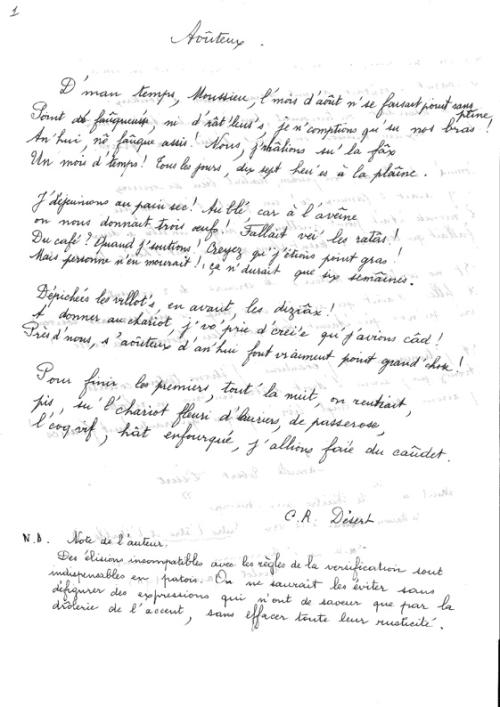 1
Aoûteux.
D'man temps, Moussieu, l'mois d'août n'se faisait point sans peine,
Point de faûqueuse, ni d'rât'leus's, je n'comptions qu'su nos bras!
An'hui, nô faûque assis! Nous, j'mâtions su' la fâx
Un mois d'temps! Tous les jours, dix sept heu'es à la plaîne.
J'déjeunions au pain sec! Au blé car à l'avêne
on nous donnait trois œufs. Fallait vei' les ratâs!
Du café? Quand j'soutions! Creyez qu'j'étions point gras!
Mais personne n'en mourait! ça n'durait que six semaines.
Dépichés les villot's, en avant, les diziâx!
A donner au chariot, j'vo' prie d'crei'e qu'j'avions câd!
Près d'nous, s'aoûteux d'an'hui font vraiment point grand'chose!
Pour finir les premiers, tout' la nuit, on rentrait,
pis, su' l'chariot fleuri d'lauriers, de passerose,
l'coq vif, hât enfourqué, j'allions faie du caûdet.
C.R. Désert
N.B. Note de l'auteur.
Des élisions incompatibles avec les règles de la versification sont
indispensables en patois. On ne saurait les éviter sans
défigurer des expressions qui n'ont de saveur que par la
drôlerie de l'accent, sans effacer toute leur rusticité.